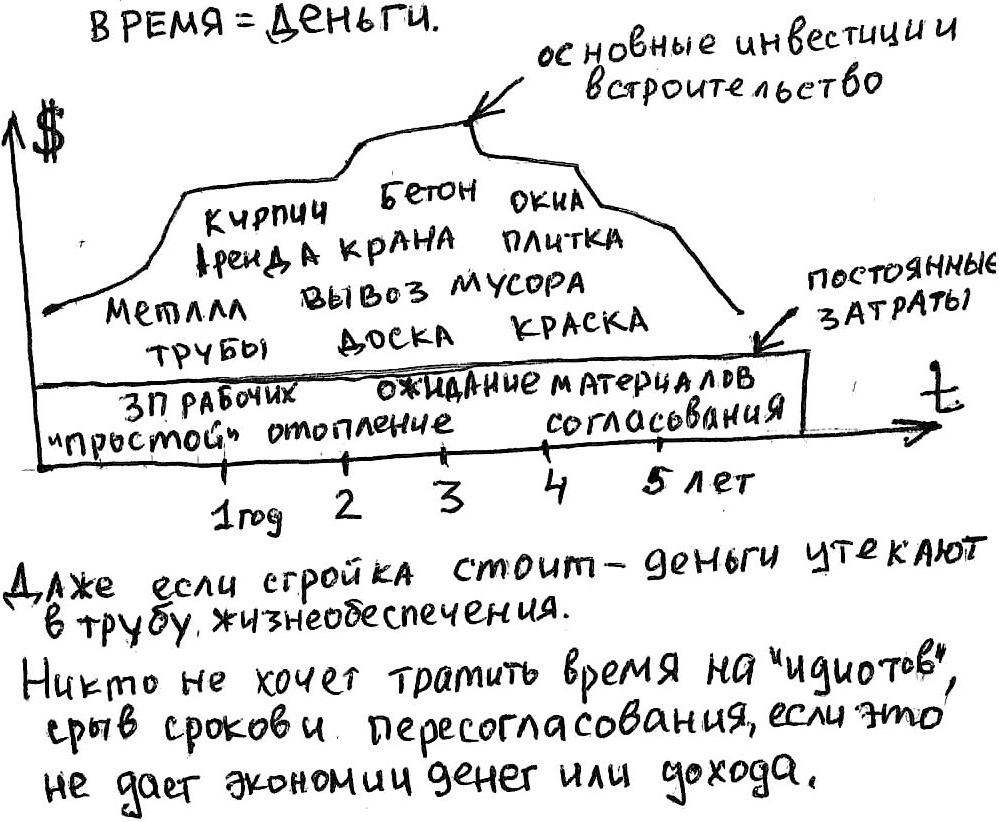 ВРЕМЯ = ДЕНЬГИ.
основные инвестиции
встроительство
$
Кирпич Бетон окна
Аренда крана плитка
Металл вывоз мусора
трубы доска краска
постоянные
затраты
ЗП рабочих ожидание материалов
"простой" отопление согласования
t
1 год 2 3 4 5 лет
Даже если стройка стоит – деньги утекают
в трубу жизнеобеспечения.
Никто не хочет тратить время на "идиотов",
срыв сроков и пересогласования, если это
не дает экономии денег или дохода.